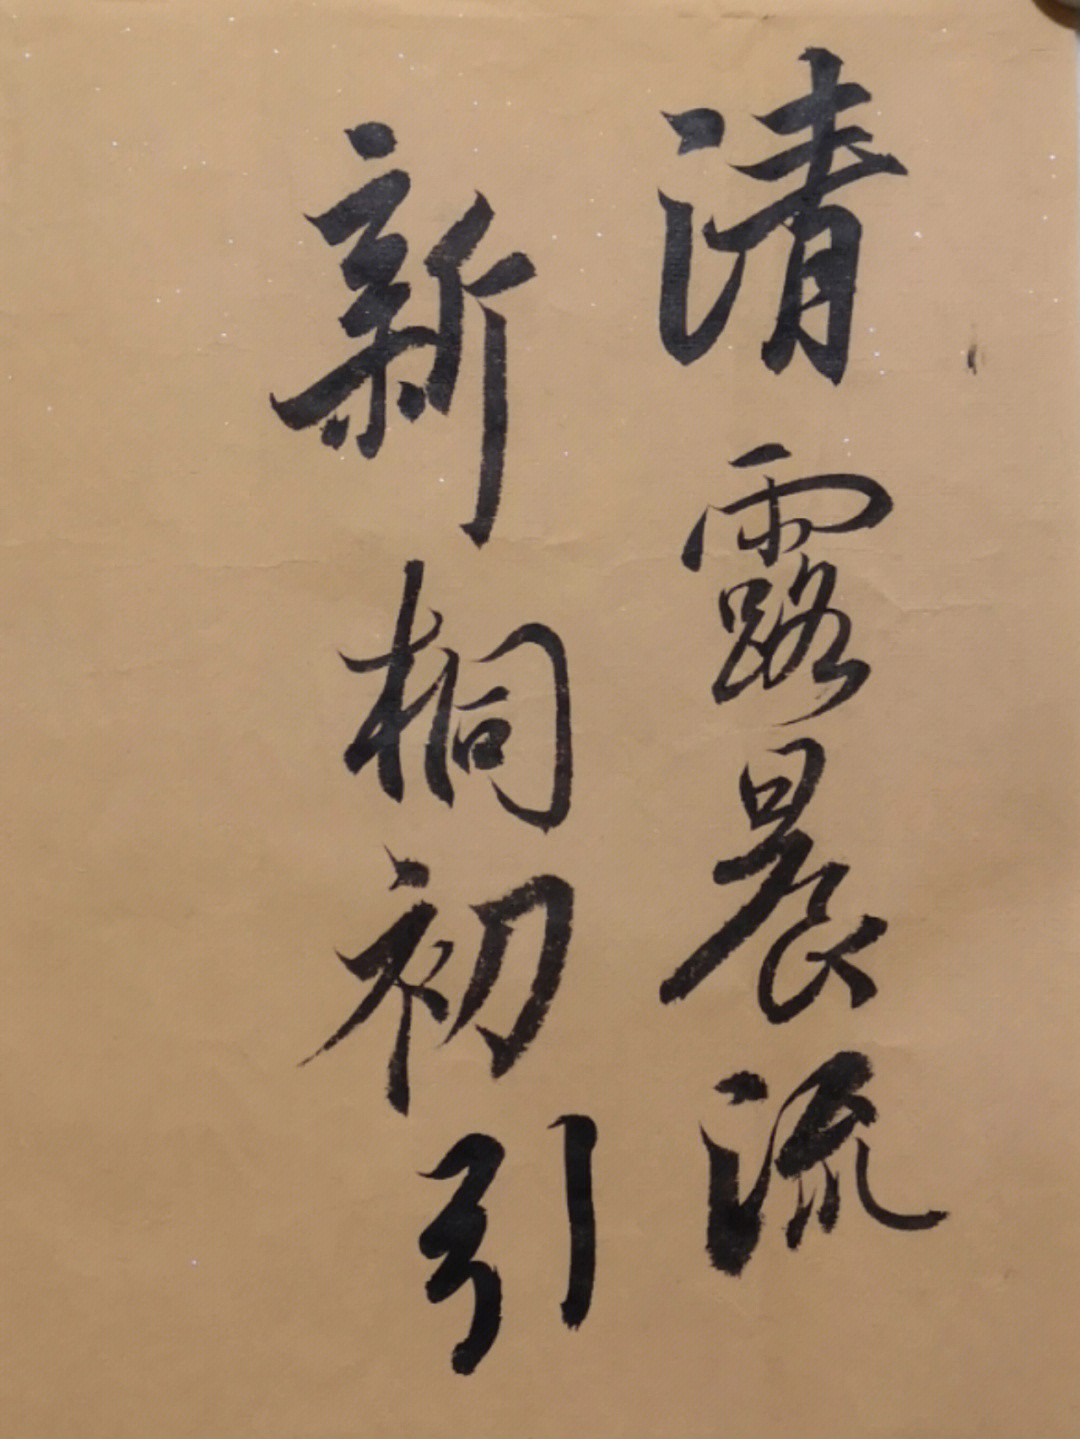 清露晨流
新桐初引